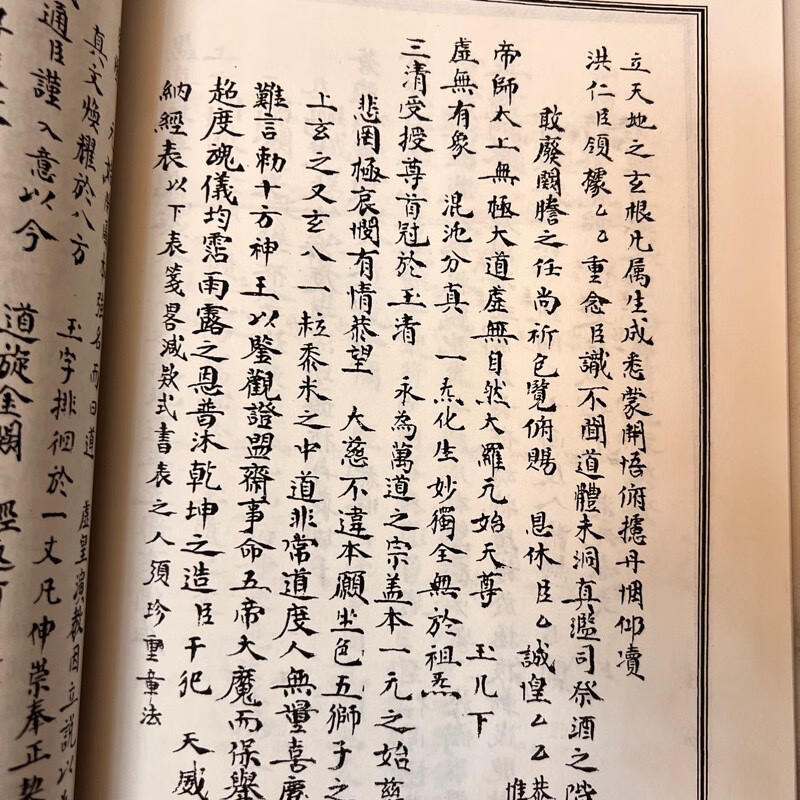 立天地之玄根凡属生成悉蒙開悟俯攄丹悃仰凟
洪仁臣領據厶厶重念臣識不聞道體未洞真濫司祭酒之階
敢廢闕謄之任尚祈包覽俯賜 恩休臣厶誠惶厶厶恭惟
帝師太上無極大道虛無自然大羅元始天尊 玉几下
虛無有象 混沌分真 一炁化生妙獨全無於祖炁
三清受授尊首冠於玉清 永為萬道之宗盖本一元之始慈
悲罔極哀憫有情恭望 大慈不違本願坐色五獅子之
上玄之又玄八一粒黍米之中道非常道度人無量喜慶
難言勅十方神王以鑒觀證盟齋事命五帝大魔而保舉
超度魂儀均霑雨露之恩普沐乾坤之造臣干犯 天威
納經表以下表箋畧減欵式書表之人須珍重章法
真文煥耀於八方 強名而曰道 虛皇演教因立說以
通臣謹入意以今 玉字排徊於一丈凡伸崇奉正
道旋金闕